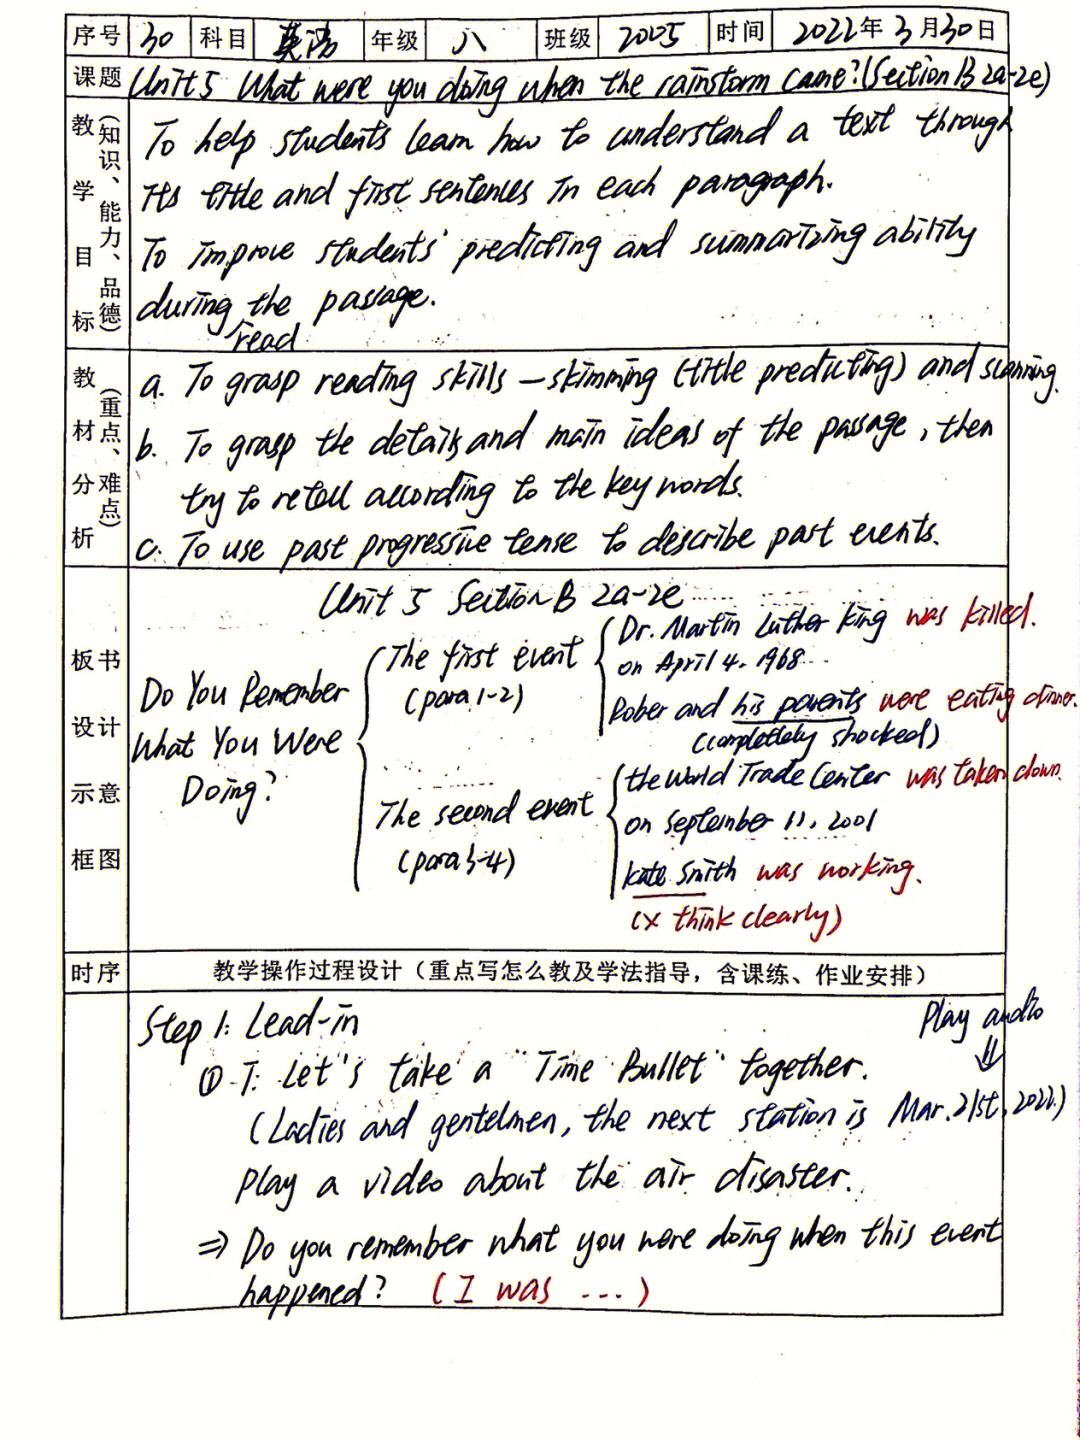 序号 30 科目 英语 年级 八 班级 2005 时间 2022年3月30日
课题 Unit 5 What were you doing when the rainstorm came? (Section B 2a-2e)
教学目标（知识、能力、品德）
To help students learn how to understand a text through
its title and first sentences in each paragraph.
To improve students' predicting and summarizing ability
during the passage.
read
教材分析（重点、难点）
a. To grasp reading skills — skimming (title predicting) and scanning.
b. To grasp the details and main ideas of the passage, then
try to retell according to the key words.
c. To use past progressive tense to describe past events.
板书设计示意框图
Unit 5 Section B 2a-2e
Do You Remember
What You Were
Doing?
The first event
(para 1-2)
Dr. Martin Luther King was killed.
on April 4. 1968
Rober and his parents were eating dinner.
(completely shocked)
The second event
(para 3-4)
the World Trade Center was taken down
on September 11, 2001
Kate Smith was working.
(x think clearly)
时序 教学操作过程设计（重点写怎么教及学法指导，含课练、作业安排）
Step 1: Lead-in
Play audio
⇓
① T: Let's take a "Time Bullet" together.
(Ladies and gentelmen, the next station is Mar. 21st, 2022.)
Play a video about the air disaster.
⇒ Do you remember what you were doing when this event
happened? (I was ...)